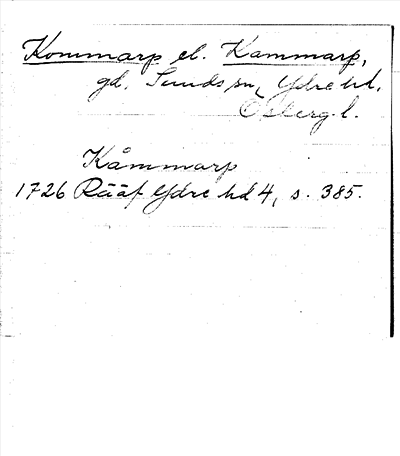 Kommarp el. Kammarp,
gd. Sunds sn, Ydre hd.
Österg. l.
Kåmmarp
1726 Rääf Ydre hd 4, s. 385.